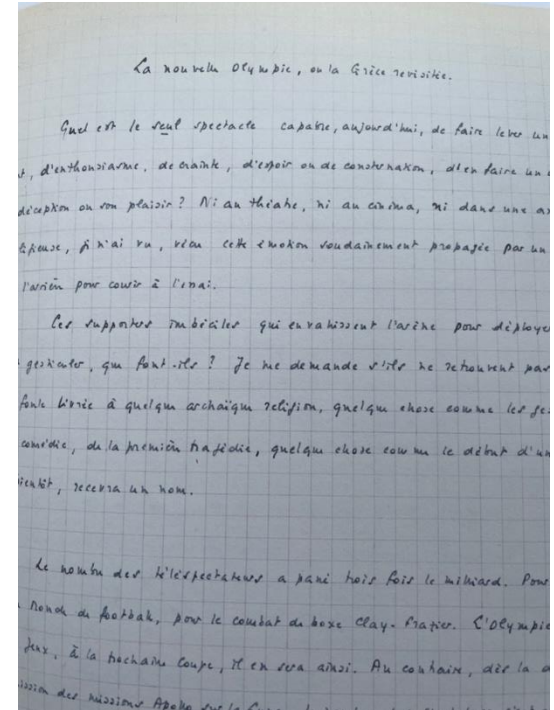 La nouvelle Olympie, ou la Grèce revisitée.
Quel est le seul spectacle capable, aujourd'hui, de faire lever un
, d'enthousiasme, de crainte, d'espoir ou de consternation, d'en faire un
déception ou son plaisir ? Ni au théâtre, ni au cinéma, ni dans une
je n'ai vu, vécu cette émotion soudainement propagée par un
l'arrière pour courir à l'essai.
Ces supporters imbéciles qui envahissent l'arène pour déployer
gesticuler, que font-ils ? Je me demande s'ils ne retrouvent pas
foule livrée à quelque archaïque religion, quelque chose comme les
comédie, de la première tragédie, quelque chose comme le début d'un
bientôt, recevra un nom.
Le nombre des téléspectateurs a passé trois fois le milliard. Pour
Monde de football, pour le combat de boxe Clay-Frazier. L'Olympie
Jeux, à la prochaine Coupe, il en sera ainsi. Au contraire, dès la
mission des missions Apollo sur la